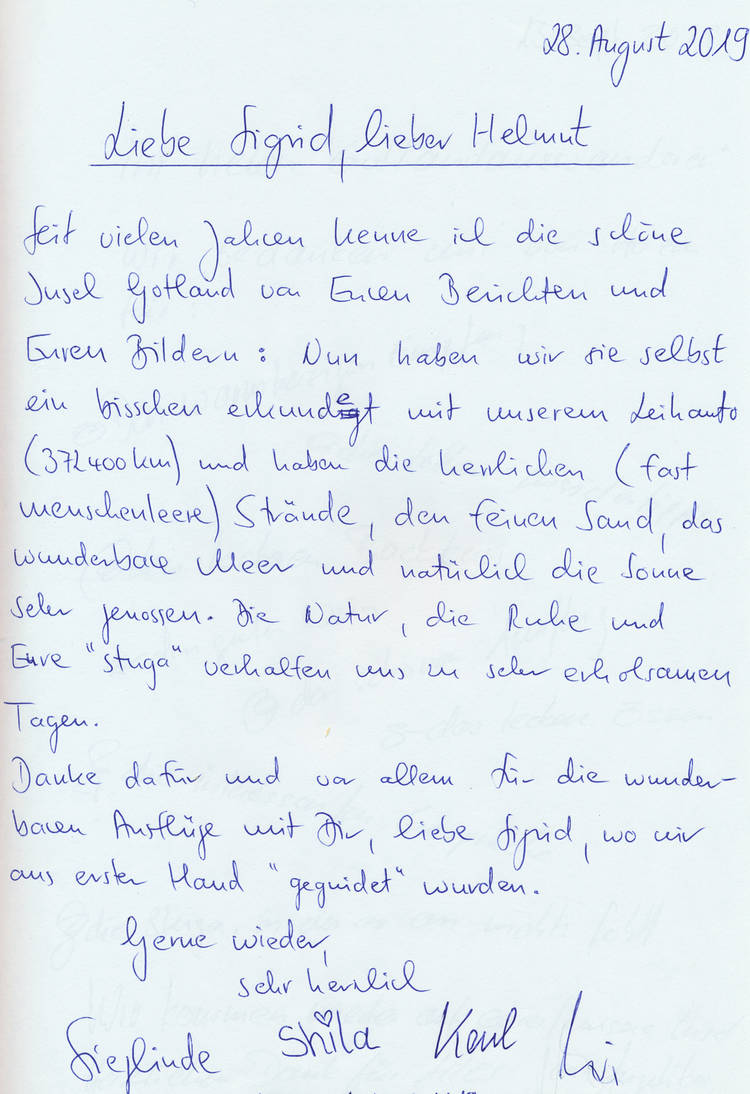 28. August 2019
Liebe Sigrid, lieber Helmut
Seit vielen Jahren kenne ich die schöne
Insel Gotland von Euren Berichten und
Euren Bildern: Nun haben wir sie selbst
ein bisschen erkundet mit unserem Leihauto
(372400 km) und haben die herrlichen (fast
menschenleere) Strände, den feinen Sand, das
wunderbare Meer und natürlich die Sonne
sehr genossen. Die Natur, die Ruhe und
Eure "stuga" verhalfen uns zu sehr erholsamen
Tagen.
Danke dafür und vor allem für die wunder-
baren Ausflüge mit Dir, liebe Sigrid, wo wir
aus erster Hand "geguidet" wurden.
Gerne wieder,
sehr herzlich
Sieglinde Shila Karl